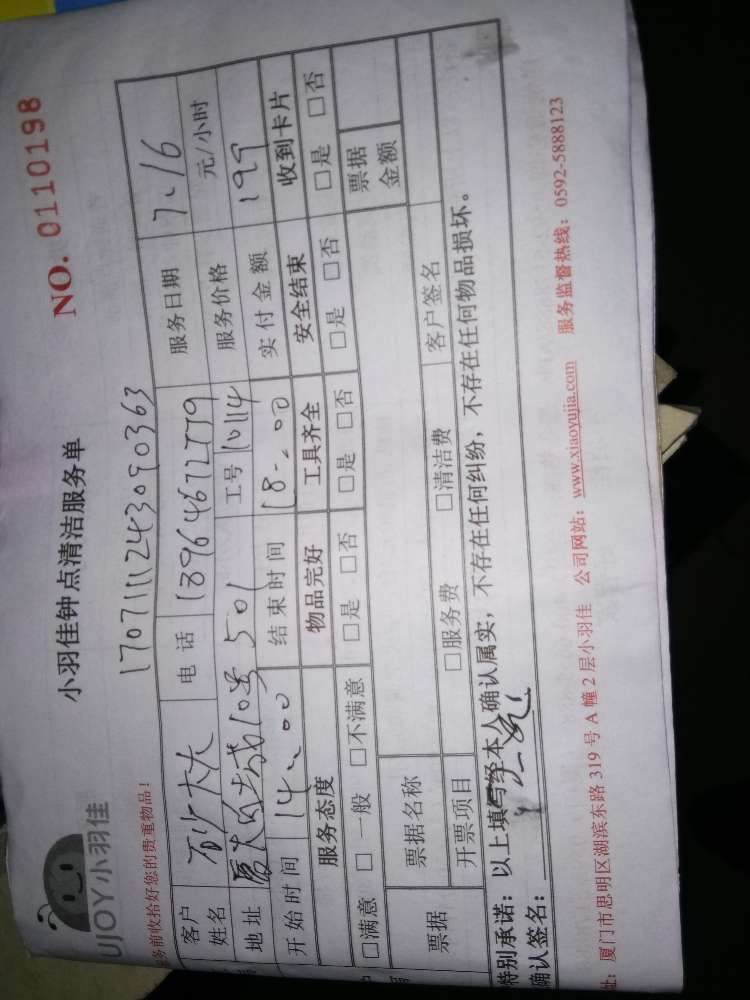 UJOY小羽佳
小羽佳钟点清洁服务单
NO. 0110198
务前收拾好您的贵重物品！
1707111243090363
客户姓名
电话
服务日期 7、16
地址 10号501
工号 10114
服务价格 元/小时
开始时间 14、00
结束时间 18、00
实付金额 199
服务态度 物品完好 工具齐全 安全结束 收到卡片
□满意 □一般 □不满意 □是 □否 □是 □否 □是 □否 □是 □否
票据 票据名称 票据金额
开票项目 □服务费 □清洁费 客户签名
特别承诺：以上填写经本人确认属实，不存在任何纠纷，不存在任何物品损坏。
确认签名：
址：厦门市思明区湖滨东路 319 号 A 幢 2 层小羽佳 公司网站：www.xiaoyujia.com 服务监督热线：0592-5888123